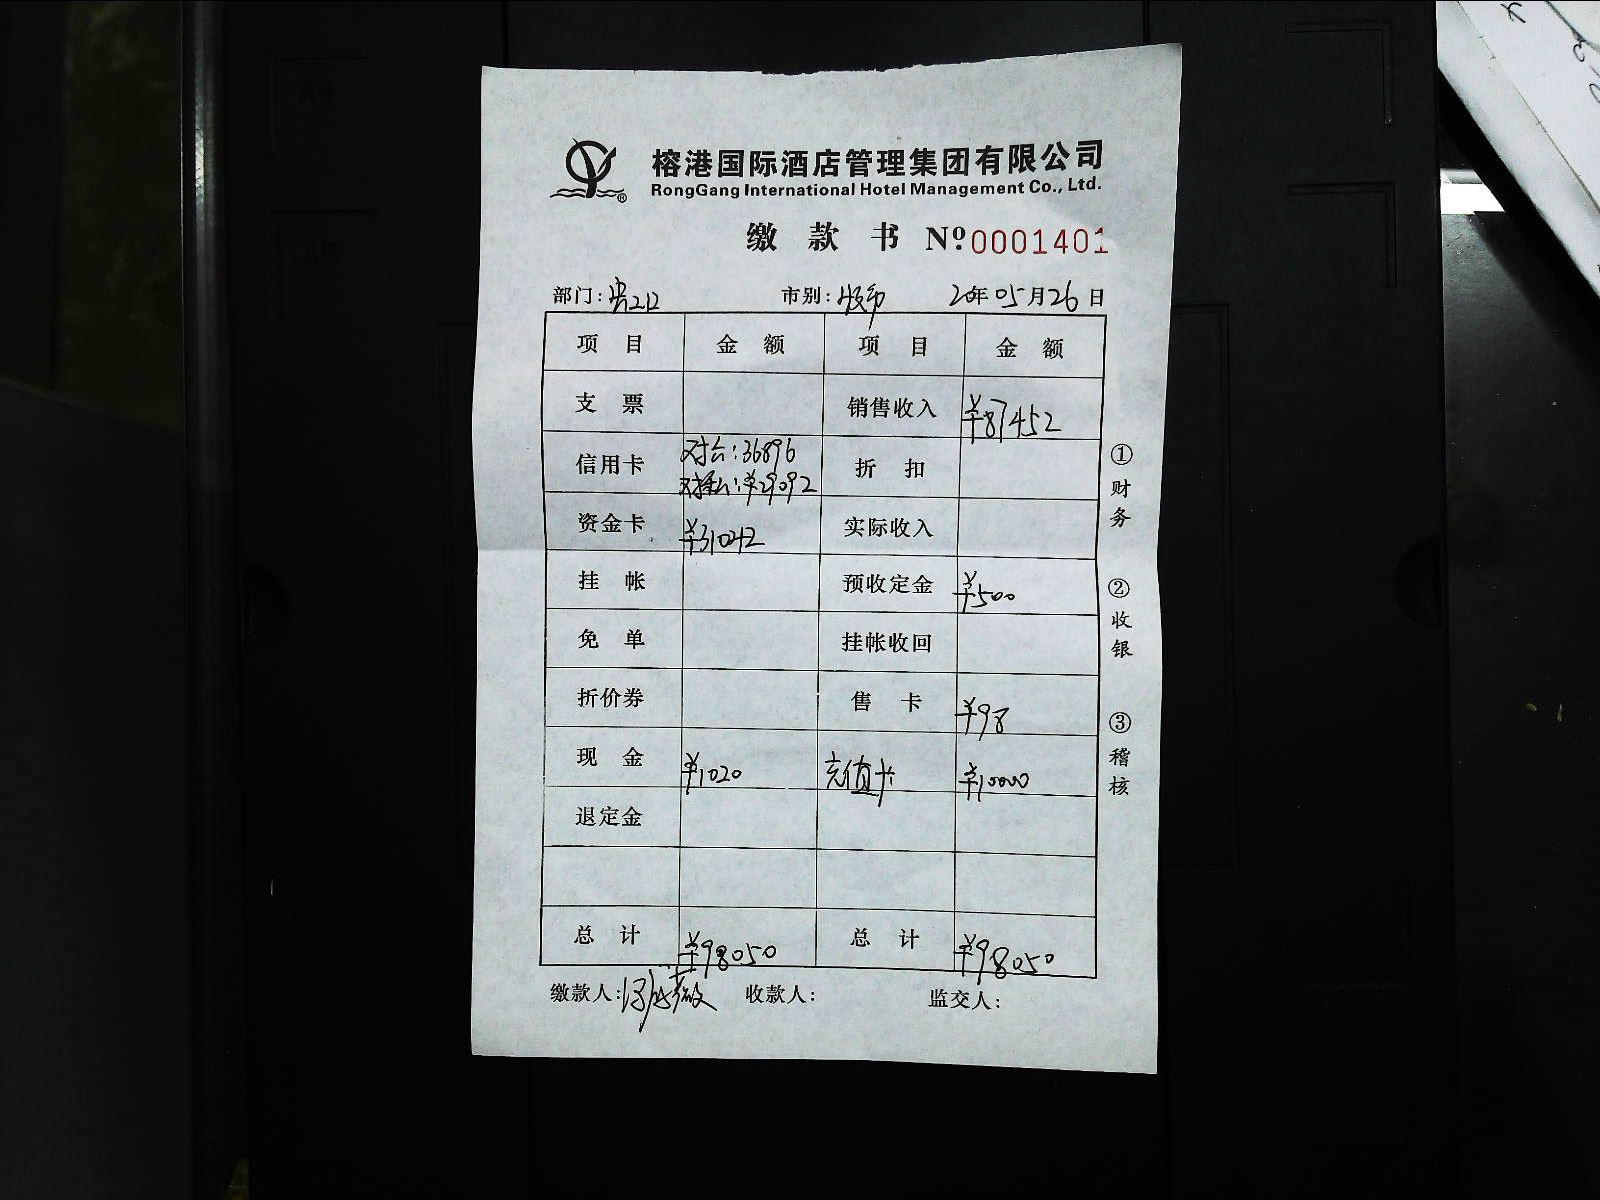 榕港国际酒店管理集团有限公司
RongGang International Hotel Management Co., Ltd.
缴款书 Nº0001401
部门: 市别: 20年05月26日
项目 金额 项目 金额
支票 销售收入 ¥87452
信用卡 对公:36896 折扣
¥29092
资金卡 ¥31042 实际收入
挂帐 预收定金 ¥500
免单 挂帐收回
折价券 售卡 ¥98
现金 ¥1020 充值卡 ¥10000
退定金
总计 ¥98050 总计 ¥98050
缴款人: 收款人: 监交人:
①财务
②收银
③稽核